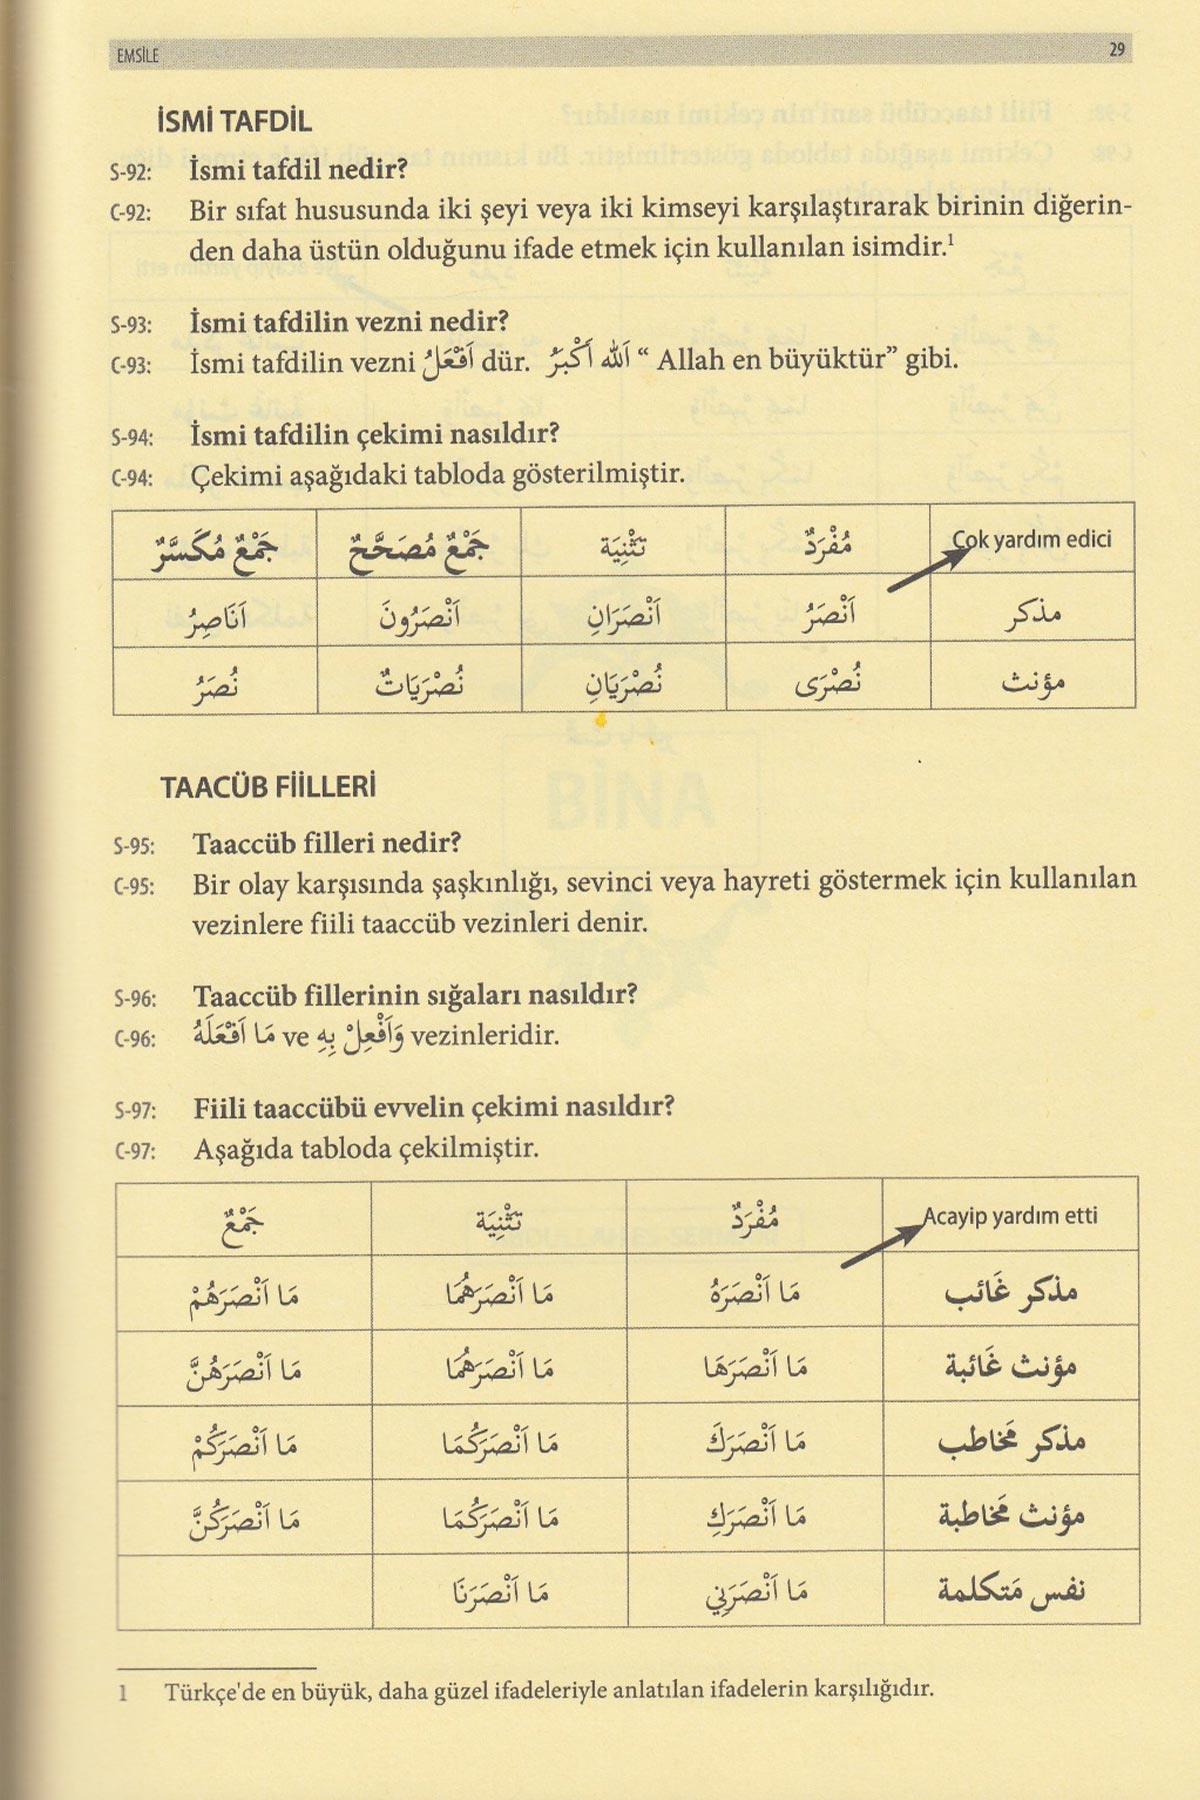 EMSİLE 29
İSMİ TAFDİL
S-92: İsmi tafdil nedir?
C-92: Bir sıfat hususunda iki şeyi veya iki kimseyi karşılaştırarak birinin diğerin-
den daha üstün olduğunu ifade etmek için kullanılan isimdir.¹
S-93: İsmi tafdilin vezni nedir?
C-93: İsmi tafdilin vezni اَفْعَلُ dür. اَلله اَكْبَرُ “ Allah en büyüktür” gibi.
S-94: İsmi tafdilin çekimi nasıldır?
C-94: Çekimi aşağıdaki tabloda gösterilmiştir.
Çok yardım edici مُفْرَدٌ تَثْنِيَة جَمْعٌ مُصَحَّحٌ جَمْعٌ مُكَسَّرٌ
مذكر اَنْصَرُ اَنْصَرَانِ اَنْصَرُونَ اَنَاصِرُ
مؤنث نُصْرَى نُصْرَيَانِ نُصْرَيَاتٌ نُصَرُ
TAACÜB FİİLLERİ
S-95: Taaccüb filleri nedir?
C-95: Bir olay karşısında şaşkınlığı, sevinci veya hayreti göstermek için kullanılan
vezinlere fiili taaccüb vezinleri denir.
S-96: Taaccüb fillerinin sığaları nasıldır?
C-96: مَا اَفْعَلَهُ ve وَاَفْعِلْ بِهِ vezinleridir.
S-97: Fiili taaccübü evvelin çekimi nasıldır?
C-97: Aşağıda tabloda çekilmiştir.
Acayip yardım etti مُفْرَدٌ تَثْنِيَة جَمْعٌ
مذكر غَائب مَا اَنْصَرَهُ مَا اَنْصَرَهُمَا مَا اَنْصَرَهُمْ
مؤنث غَائبة مَا اَنْصَرَهَا مَا اَنْصَرَهُمَا مَا اَنْصَرَهُنَّ
مذكر مَخاطب مَا اَنْصَرَكَ مَا اَنْصَرَكُمَا مَا اَنْصَرَكُمْ
مؤنث مَخاطبة مَا اَنْصَرَكِ مَا اَنْصَرَكُمَا مَا اَنْصَرَكُنَّ
نفس مَتكلمة مَا اَنْصَرَنِي مَا اَنْصَرَنَا
1 Türkçe'de en büyük, daha güzel ifadeleriyle anlatılan ifadelerin karşılığıdır.